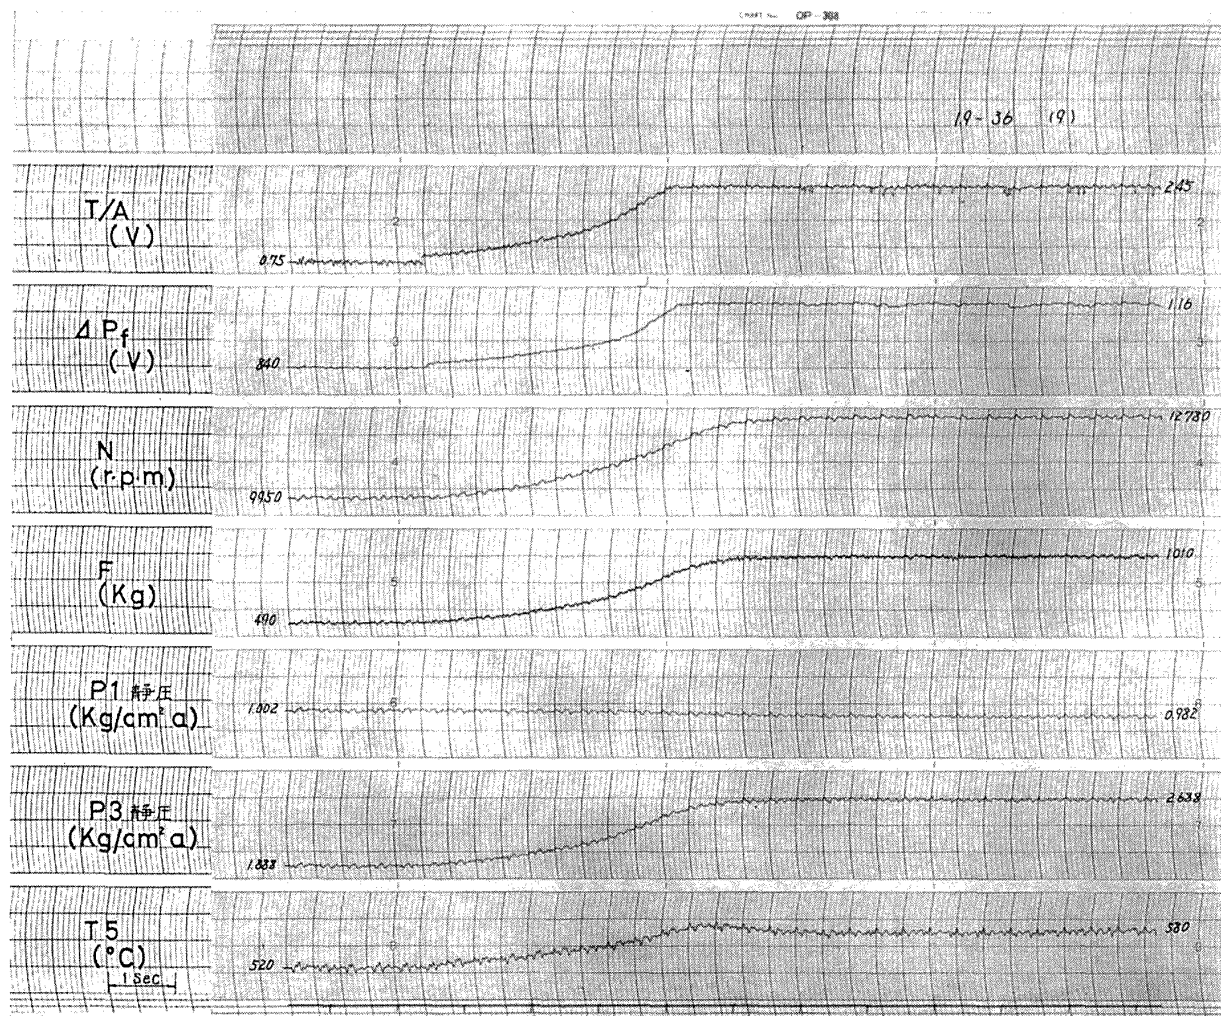 CHART No. OP - 368
19-36 (9)
T/A
(V)
2
2
0.75
2.45
Δ Pf
(V)
3
3
840
1.16
N
(r·p·m)
4
4
9950
12780
F
(Kg)
5
5
490
1010
P1 静圧
(Kg/cm² a)
6
1.002
0.982
P3 静圧
(Kg/cm² a)
7
7
1.888
2.688
T5
(°C)
8
8
520
580
1 Sec